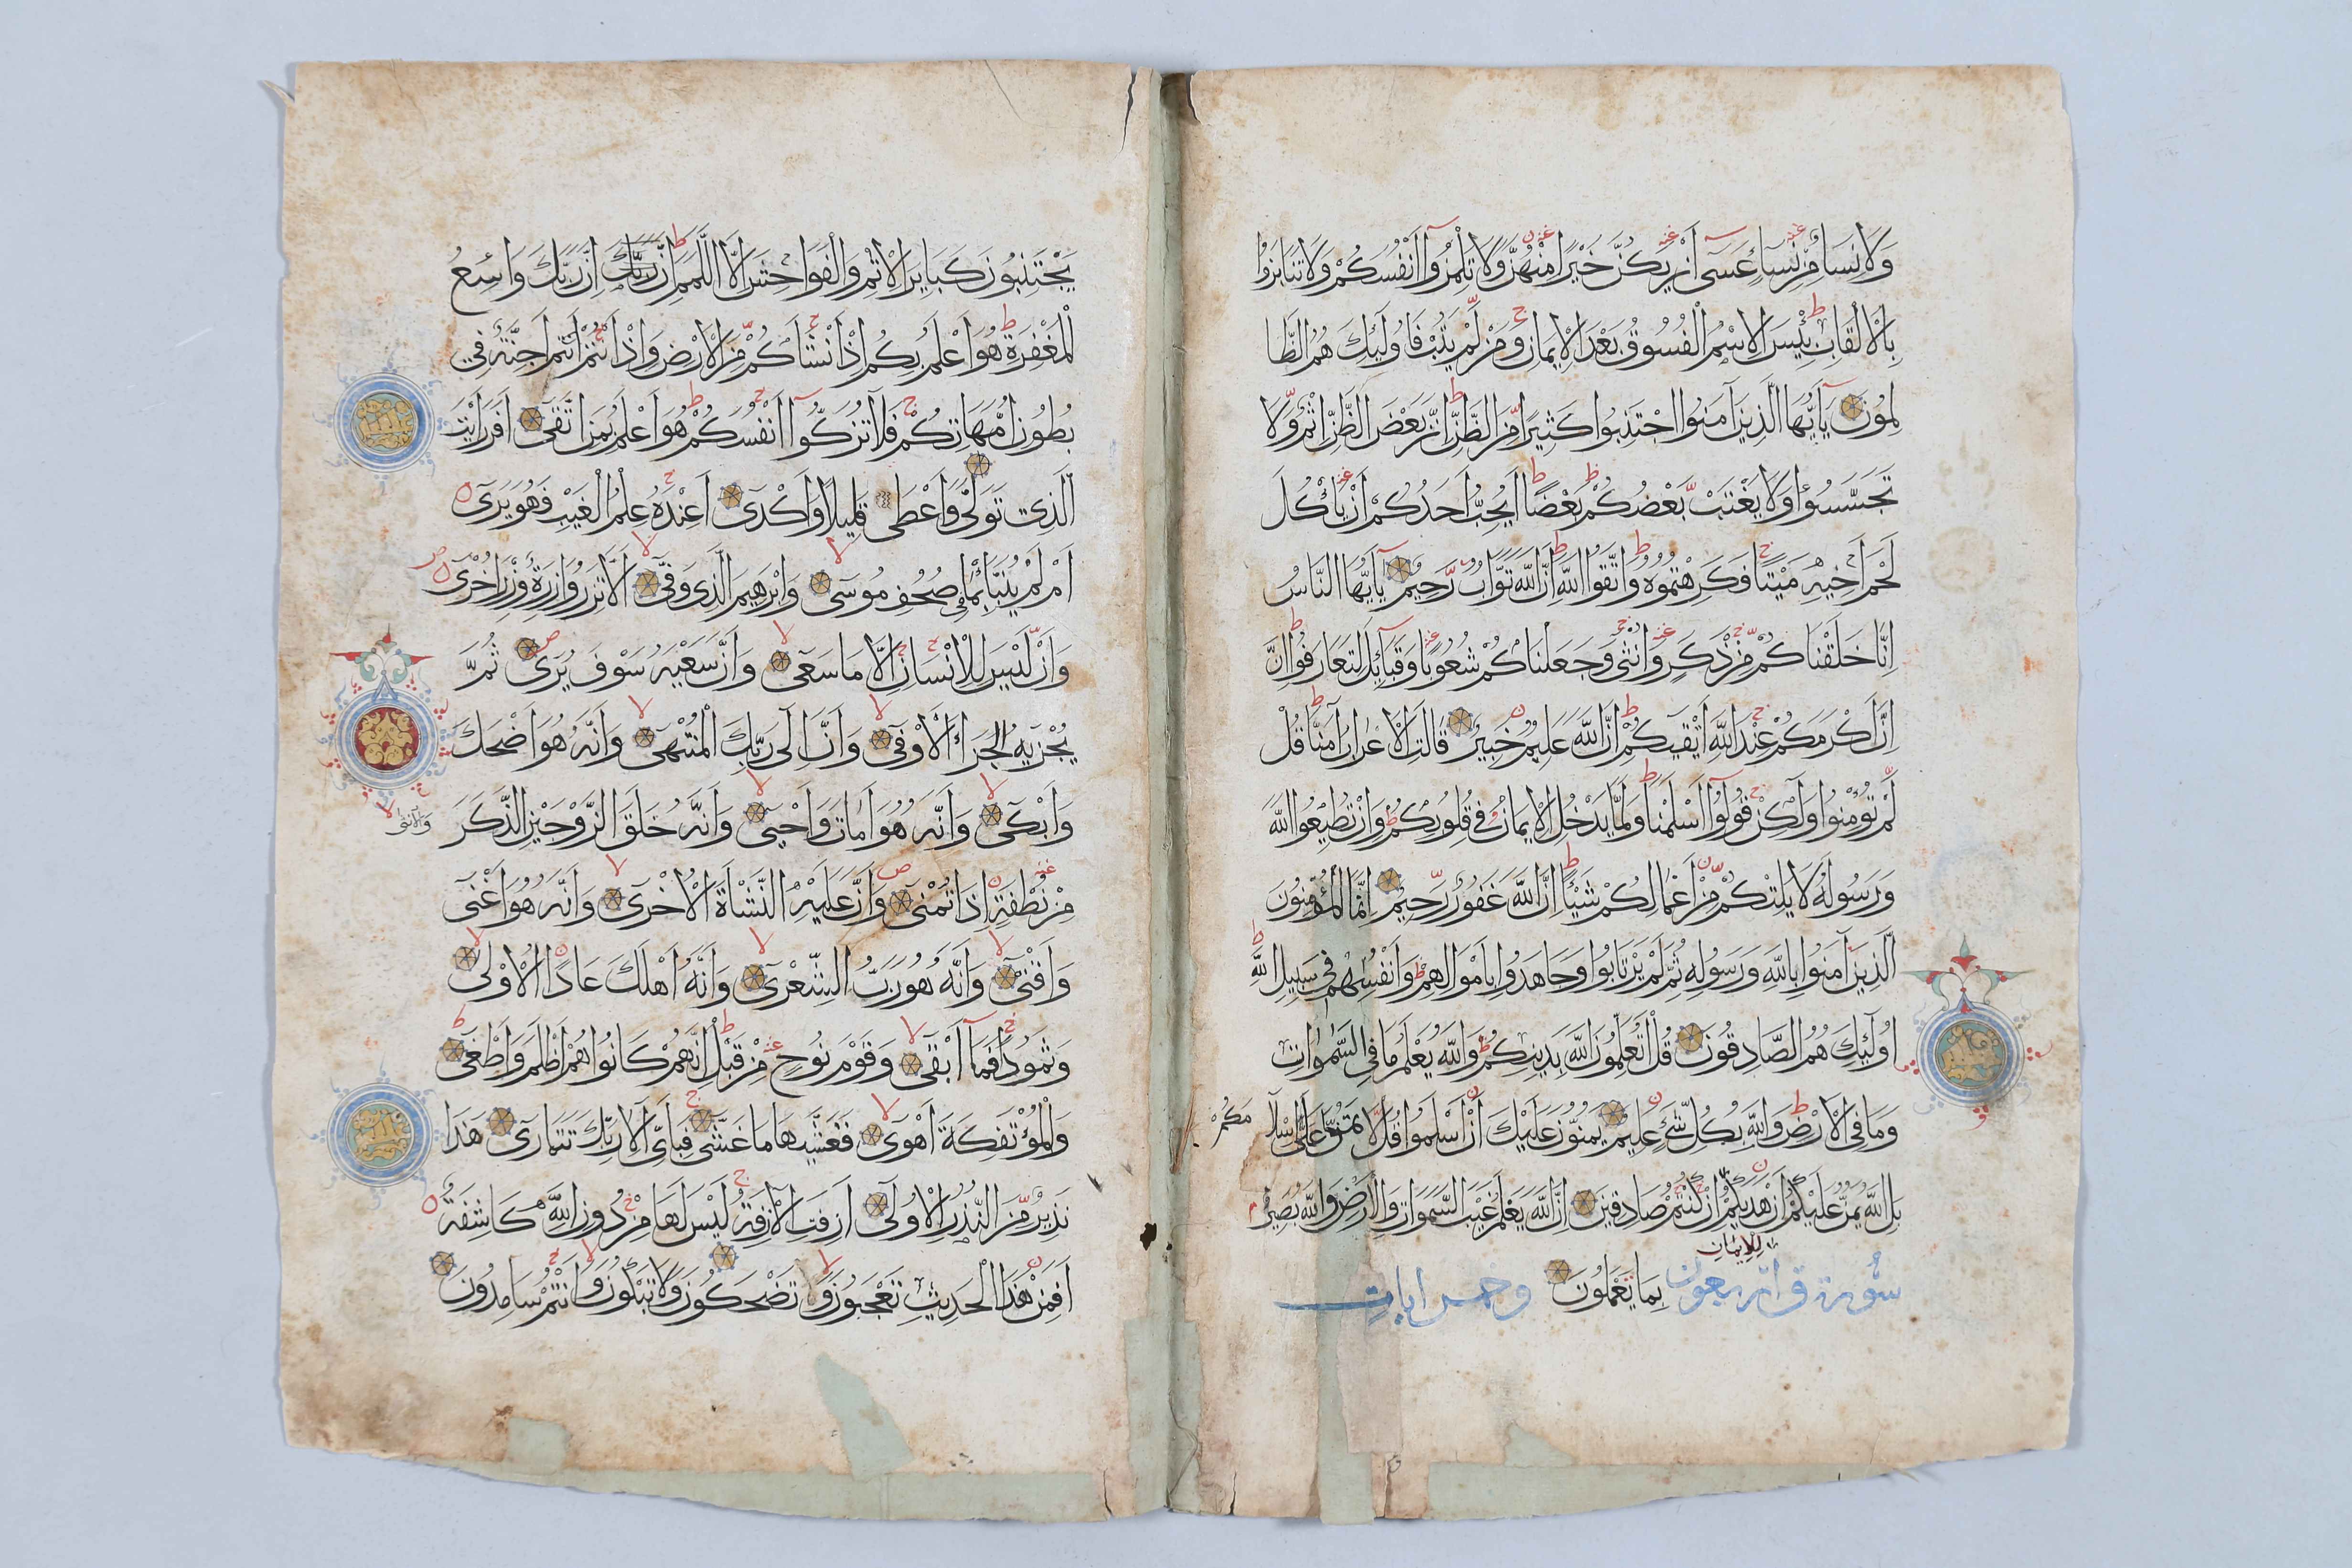 وَلَا نِسَاءٌ مِّن نِّسَاءٍ عَسَىٰ أَن يَكُنَّ خَيْرًا مِّنْهُنَّ وَلَا تَلْمِزُوا أَنْفُسَكُمْ وَلَا تَنَابَزُوا
بِالْأَلْقَابِ بِئْسَ الِاسْمُ الْفُسُوقُ بَعْدَ الْإِيمَانِ وَمَن لَّمْ يَتُبْ فَأُولَٰئِكَ هُمُ الظَّا
لِمُونَ يَا أَيُّهَا الَّذِينَ آمَنُوا اجْتَنِبُوا كَثِيرًا مِّنَ الظَّنِّ إِنَّ بَعْضَ الظَّنِّ إِثْمٌ وَّلَا
تَجَسَّسُوا وَلَا يَغْتَب بَّعْضُكُمْ بَعْضًا أَيُحِبُّ أَحَدُكُمْ أَن يَأْكُلَ
لَحْمَ أَخِيهِ مَيْتًا فَكَرِهْتُمُوهُ وَاتَّقُوا اللَّهَ إِنَّ اللَّهَ تَوَّابٌ رَّحِيمٌ يَا أَيُّهَا النَّاسُ
إِنَّا خَلَقْنَاكُمْ مِّن ذَكَرٍ وَأُنْثَىٰ وَجَعَلْنَاكُمْ شُعُوبًا وَقَبَائِلَ لِتَعَارَفُوا إِنَّ
إِنَّ أَكْرَمَكُمْ عِنْدَ اللَّهِ أَتْقَيكُمْ إِنَّ اللَّهَ عَلِيمٌ خَبِيرٌ قَالَتِ الْأَعْرَابُ آمَنَّا قُلْ
لَّمْ تُؤْمِنُوا وَلَٰكِن قُولُوا أَسْلَمْنَا وَلَمَّا يَدْخُلِ الْإِيمَانُ فِي قُلُوبِكُمْ وَإِن تُطِيعُوا اللَّهَ
وَرَسُولَهُ لَا يَلِتْكُم مِّنْ أَعْمَالِكُمْ شَيْئًا إِنَّ اللَّهَ غَفُورٌ رَّحِيمٌ إِنَّمَا الْمُؤْمِنُونَ
الَّذِينَ آمَنُوا بِاللَّهِ وَرَسُولِهِ ثُمَّ لَمْ يَرْتَابُوا وَجَاهَدُوا بِأَمْوَالِهِمْ وَأَنْفُسِهِمْ فِي سَبِيلِ اللَّهِ
أُولَٰئِكَ هُمُ الصَّادِقُونَ قُلْ أَتُعَلِّمُونَ اللَّهَ بِدِينِكُمْ وَاللَّهُ يَعْلَمُ مَا فِي السَّمَٰوَاتِ
وَمَا فِي الْأَرْضِ وَاللَّهُ بِكُلِّ شَيْءٍ عَلِيمٌ يَمُنُّونَ عَلَيْكَ أَنْ أَسْلَمُوا قُل لَّا تَمُنُّوا عَلَيَّ إِسْلَا
مَكُمْ
بَلِ اللَّهُ يَمُنُّ عَلَيْكُمْ أَنْ هَدَيكُمْ إِنْ كُنْتُمْ صَادِقِينَ إِنَّ اللَّهَ يَعْلَمُ غَيْبَ السَّمَوَاتِ وَالْأَرْضِ وَاللَّهُ بَصِيرٌ
لِلْإِيمَانِ
بِمَا تَعْمَلُونَ
سُورة ق اربعون وخمس ايات
يَجْتَنِبُونَ كَبَايِرَ الْإِثْمِ وَالْفَوَاحِشَ إِلَّا اللَّمَمَ إِنَّ رَبَّكَ إِنَّ رَبَّكَ وَاسِعُ
الْمَغْفِرَةِ هُوَ أَعْلَمُ بِكُمْ إِذْ أَنْشَأَكُمْ مِّنَ الْأَرْضِ وَإِذْ أَنْتُمْ أَجِنَّةٌ فِي
بُطُونِ أُمَّهَاتِكُمْ فَلَا تُزَكُّوا أَنْفُسَكُمْ هُوَ أَعْلَمُ بِمَنِ اتَّقَىٰ أَفَرَأَيْتَ
الَّذِي تَوَلَّىٰ وَأَعْطَىٰ قَلِيلًا وَأَكْدَىٰ أَعِنْدَهُ عِلْمُ الْغَيْبِ فَهُوَ يَرَىٰ
أَمْ لَمْ يُنَبَّأْ بِمَا فِي صُحُفِ مُوسَىٰ وَإِبْرَٰهِيمَ الَّذِي وَفَّىٰ أَلَّا تَزِرُ وَازِرَةٌ وِّزْرَ أُخْرَىٰ
وَأَن لَّيْسَ لِلْإِنْسَانِ إِلَّا مَا سَعَىٰ وَأَنَّ سَعْيَهُ سَوْفَ يُرَىٰ ثُمَّ
يُجْزَيهُ الْجَزَاءَ الْأَوْفَىٰ وَأَنَّ إِلَىٰ رَبِّكَ الْمُنْتَهَىٰ وَأَنَّهُ هُوَ أَضْحَكَ
وَأَبْكَىٰ وَأَنَّهُ هُوَ أَمَاتَ وَأَحْيَىٰ وَأَنَّهُ خَلَقَ الزَّوْجَيْنِ الذَّكَرَ
وَالْأُنْثَىٰ
مِنْ نُطْفَةٍ إِذَا تُمْنَىٰ وَأَنَّ عَلَيْهِ النَّشْأَةَ الْأُخْرَىٰ وَأَنَّهُ هُوَ أَغْنَىٰ
وَأَقْنَىٰ وَأَنَّهُ هُوَ رَبُّ الشِّعْرَىٰ وَأَنَّهُ أَهْلَكَ عَادًا الْأُولَىٰ
وَثَمُودًا فَمَا أَبْقَىٰ وَقَوْمَ نُوحٍ مِنْ قَبْلُ إِنَّهُمْ كَانُوا هُمْ أَظْلَمَ وَأَطْغَىٰ
وَالْمُؤْتَفِكَةَ أَهْوَىٰ فَغَشَّيهَا مَا غَشَّىٰ فَبِأَيِّ آلَاءِ رَبِّكَ تَتَمَارَىٰ هَذَا
نَذِيرٌ مِّنَ النُّذُرِ الْأُولَىٰ أَزِفَتِ الْآزِفَةُ لَيْسَ لَهَا مِنْ دُونِ اللَّهِ كَاشِفَةٌ
أَفَمِنْ هَذَا الْحَدِيثِ تَعْجَبُونَ وَتَضْحَكُونَ وَلَا تَبْكُونَ وَأَنْتُمْ سَامِدُونَ